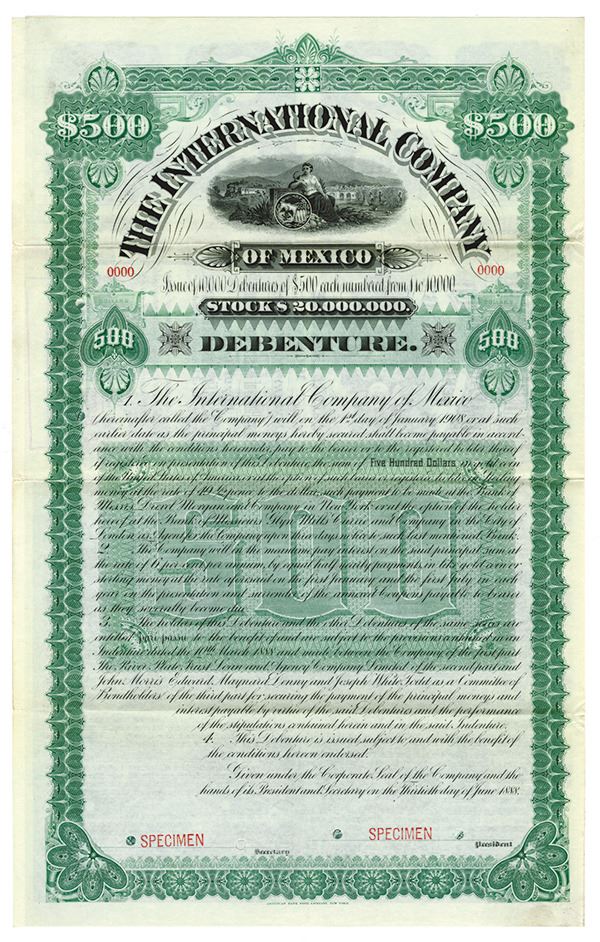 $500 $500
THE INTERNATIONAL COMPANY
OF MEXICO
0000 0000
Issue of 10,000 Debentures of $500 each numbered from 1 to 10,000.
STOCK $ 20.000.000.
500 500
DEBENTURE.
1. The International Company of Mexico
(hereinafter called the Company) will on the 1st day of January 1908 or at such
earlier date as the principal moneys hereby secured shall become payable in accord-
ance with the conditions hereunder, pay to the bearer or to the registered holder there-
if registered on presentation of this Debenture the sum of Five Hundred Dollars in gold coin
of the United States of America or at the option of such bearer or registered holder in sterling
money at the rate of 49 ½ pence to the dollar, such payment to be made at the Bank of
Messrs Drexel Morgan and Company in New York or at the option of the holder
hereof at the Bank of Messrs Glyn Mills Currie and Company in the City of
London as Agents for the Company upon days when said last named Bank
2. The Company will in the meantime pay interest on the said principal sum at
the rate of 6 per cent per annum, by equal half yearly payments in such gold coin or
sterling money at the rate aforesaid on the first January and the first July in each
year on the presentation and surrender of the annexed Coupons payable to bearer
as they severally become due
3. The holders of this Debenture and the other Debentures of the same series are
entitled pari passu to the benefit of and are subject to the provisions contained in an
Indenture dated the 10th March 1888 and made between the Company of the first part
The River Plate Trust Loan and Agency Company Limited of the second part and
John Morris Edward Maynard Denny and Joseph White Todd as a Committee of
Bondholders of the third part for securing the payment of the principal moneys and
interest payable by virtue of the said Debentures and the performance
of the stipulations contained herein and in the said Indenture.
4. This Debenture is issued subject to and with the benefit of
the conditions hereon endorsed.
Given under the Corporate Seal of the Company and the
hands of its President and Secretary on the Thirtieth day of June 1888.
SPECIMEN SPECIMEN
Secretary President
AMERICAN BANK NOTE COMPANY, NEW YORK